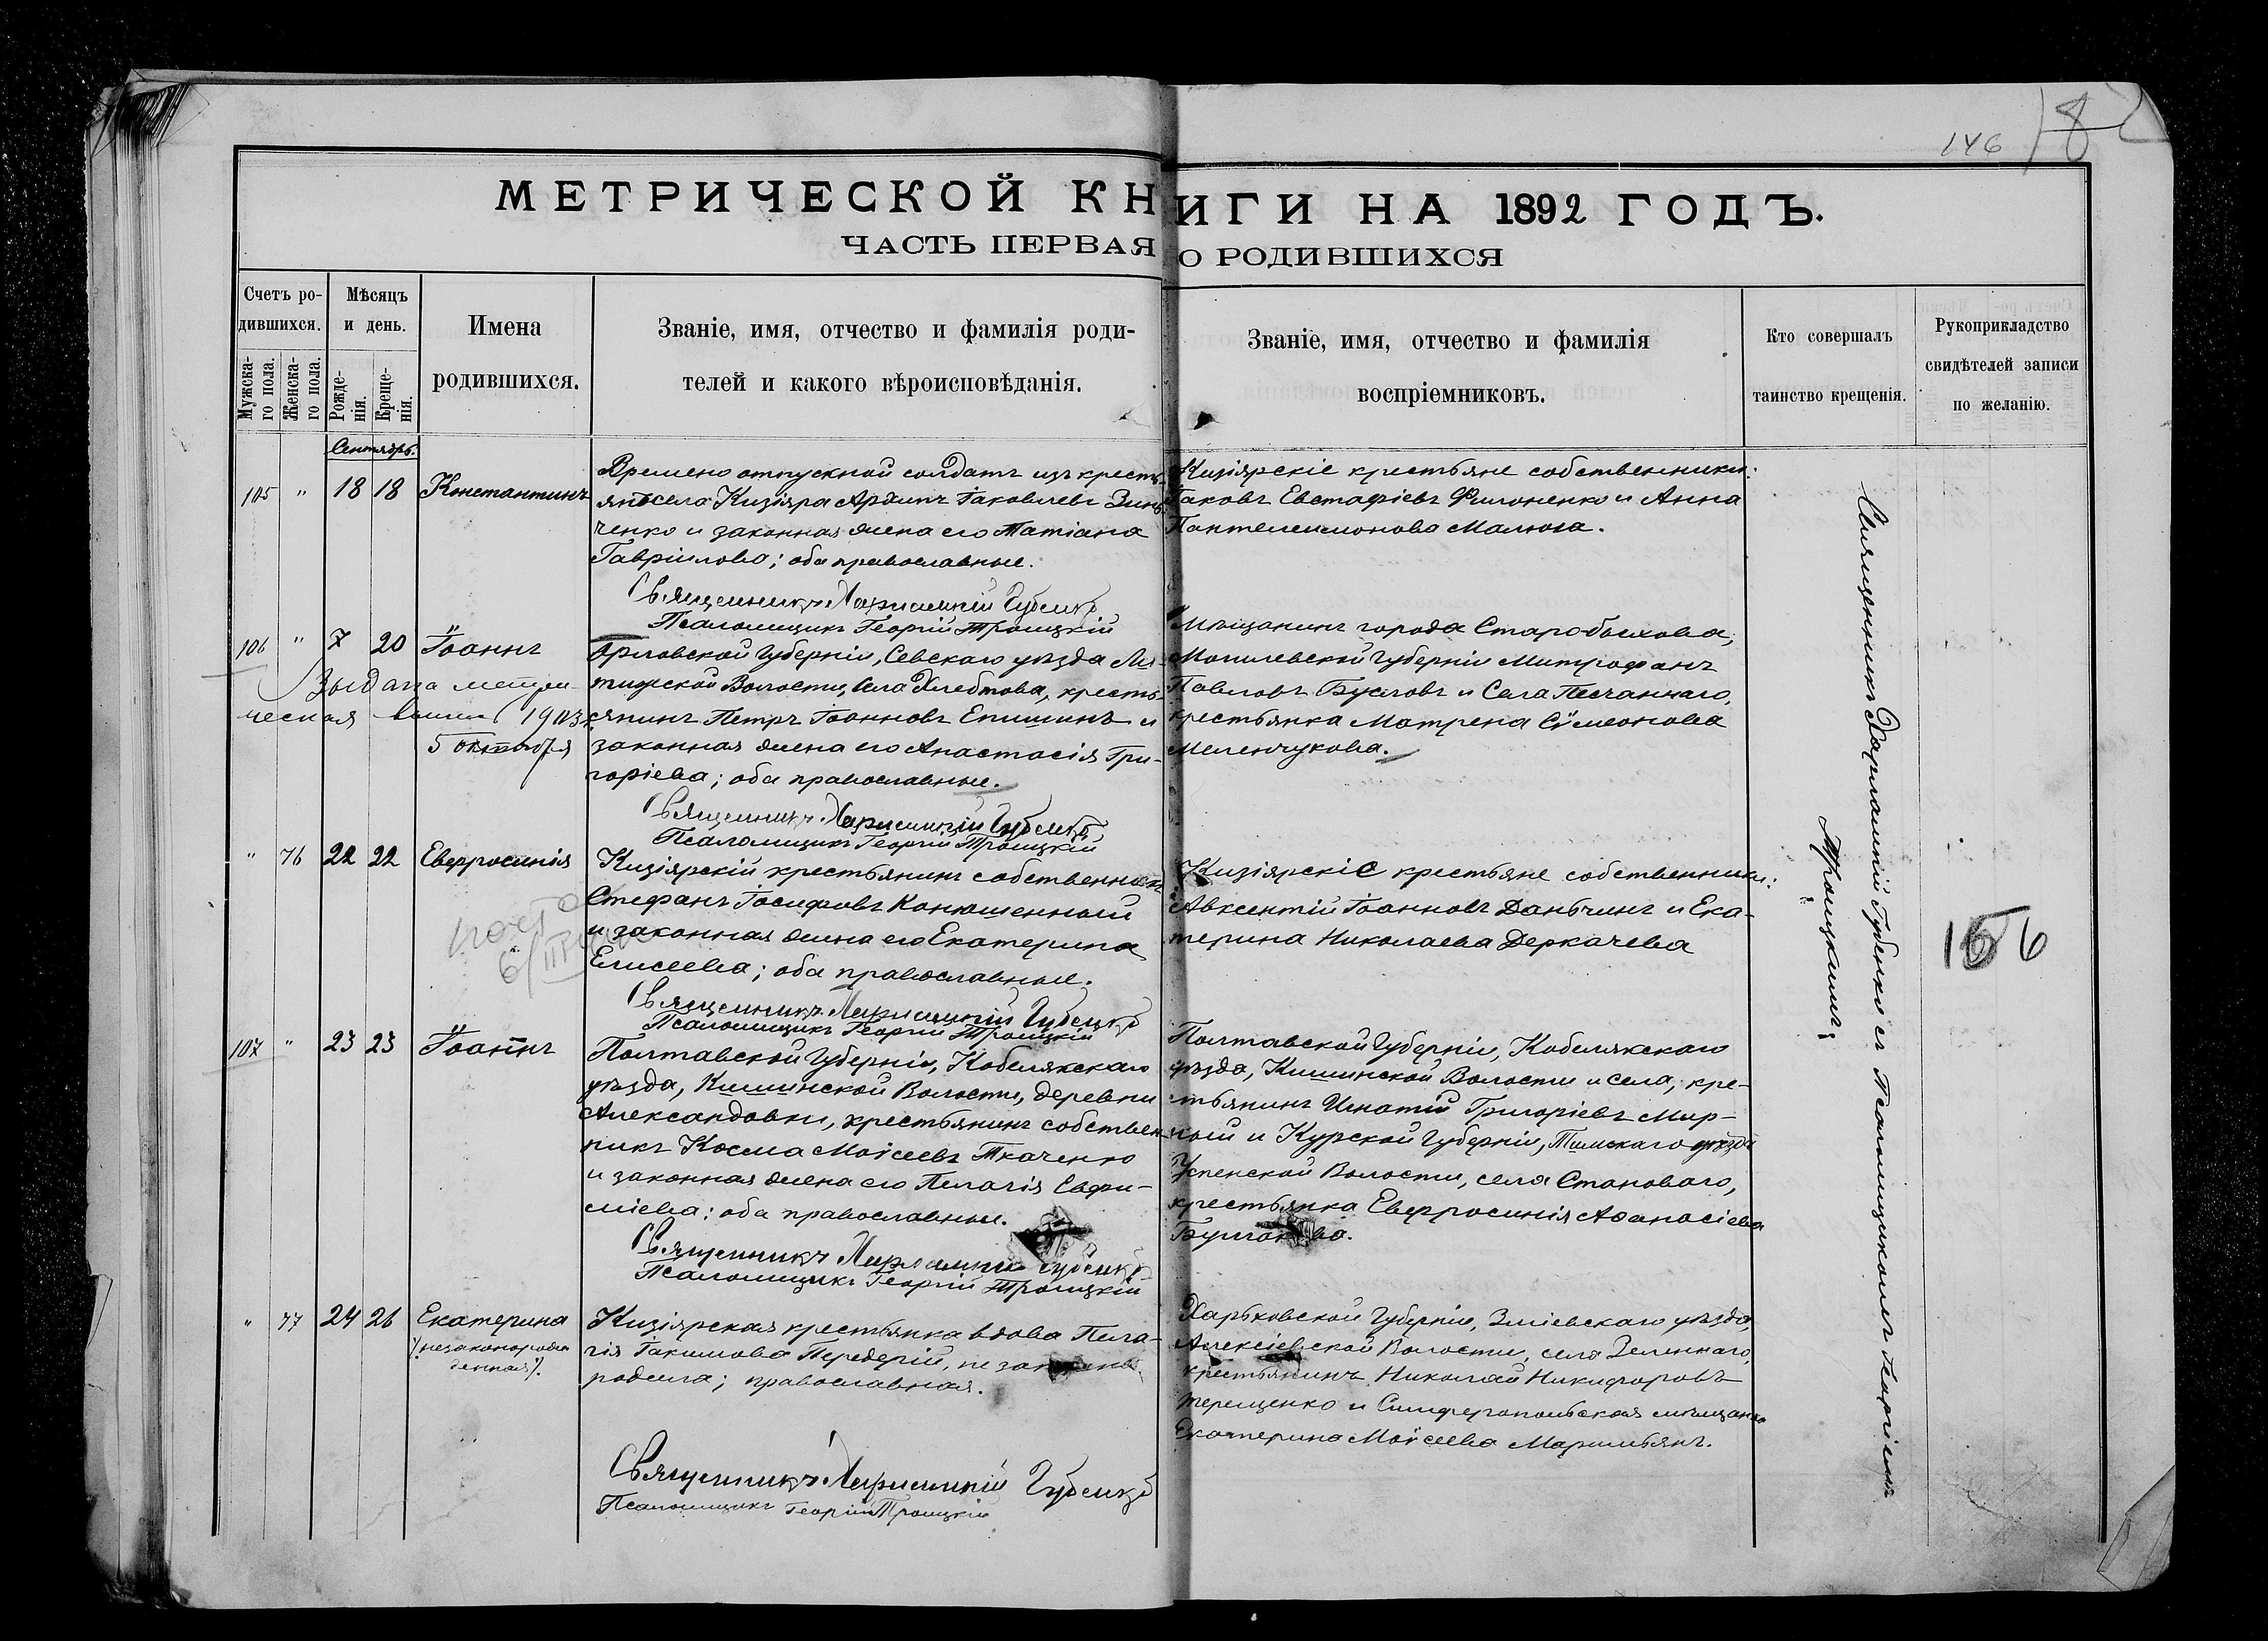 146 182
МЕТРИЧЕСКОЙ КНИГИ НА 1892 ГОДЪ.
ЧАСТЬ ПЕРВАЯ О РОДИВШИХСЯ
Счетъ ро-
дившихся.
Мужска-
го пола.
Женска-
го пола.
Мѣсяцъ
и день.
Рожде-
нія.
Креще-
нія.
Имена
родившихся.
Званіе, имя, отчество и фамилія роди-
телей и какого вѣроисповѣданія.
Званіе, имя, отчество и фамилія
воспріемниковъ.
Кто совершалъ
таинство крещенія.
Рукоприкладство
свидѣтелей записи
по желанію.
Сентябрь.
105 " 18 18 Константинъ
Времено отпускной солдатъ изъ кресть-
янъ села Кизіяра Архипъ Іаковлевъ Зинь-
ченко и законная жена его Татіана
Гавріилова; оба православные.
Священникъ Харлампій Губенко
Псаломщикъ Георгій Троицкій
Кизіярскіе крестьяне собственники:
Іаковъ Евстафіевъ Филоненко и Анна
Пантелеимонова Малюга.
106 " 7 20 Іоаннъ
Выдана метри-
ческая 1903
5 октября
Орловской Губерніи, Севскаго уѣзда Ли-
тижской Волости, села Хлебтова, кресть-
янинъ Петръ Іоанновъ Епишинъ и
законная жена его Анастасія Гри-
горіева; оба православные.
Священникъ Харлампій Губенко
Псаломщикъ Георгій Троицкій
Мѣщанинъ города Старобыхова,
Могилевской Губерніи Митрофанъ
Павловъ Бусловъ и Села Песчаннаго,
крестьянка Матрена Сѵмеонова
Меленчукова.
" 76 22 22 Евфросинія
Кизіярскій крестьянинъ собственникъ
Стефанъ Іосифовъ Конюшенный
и законная жена его Екатерина
Елисеева; оба православные.
Священникъ Харлампій Губенко
Псаломщикъ Георгій Троицкій
Кизіярскіе крестьяне собственники:
Авксентій Іоанновъ Даньчинъ и Ека-
терина Николаева Деркачева
107 " 23 23 Іоаннъ
Полтавской Губерніи, Кобелякскаго
уѣзда, Кишинской Волости, деревни
Александовки, крестьянинъ собствен-
никъ Косма Моѵсеевъ Ткаченко
и законная жена его Пелагія Евфи-
міева; оба православные.
Священникъ Харлампій Губенко
Псаломщикъ Георгій Троицкій
Полтавской Губерніи, Кобелякскаго
уѣзда, Кишинской Волости и села, кре-
стьянинъ Игнатій Григоріевъ Мир-
ный и Курской Губерніи, Тимскаго уѣзда
Успенской Волости, села Становаго,
крестьянка Евфросинія Аѳанасіева
Булгакова.
" 77 24 26 Екатерина
(незаконорож-
денная).
Кизіярская крестьянка вдова Пела-
гія Іакимова Передерій, не законно
родила; православная.
Священникъ Харлампій Губенко
Псаломщикъ Георгій Троицкій
Харьковской Губерніи, Зміевскаго уѣзда,
Алексіевской Волости, села Зеленнаго,
крестьянинъ Николай Никифоровъ
Терещенко и Симферопольская мѣщанка
Екатерина Моѵсеева Маримьянъ.
Священникъ Харлампій Губенко съ Псаломщикомъ Георгіемъ
Троицкимъ:
156